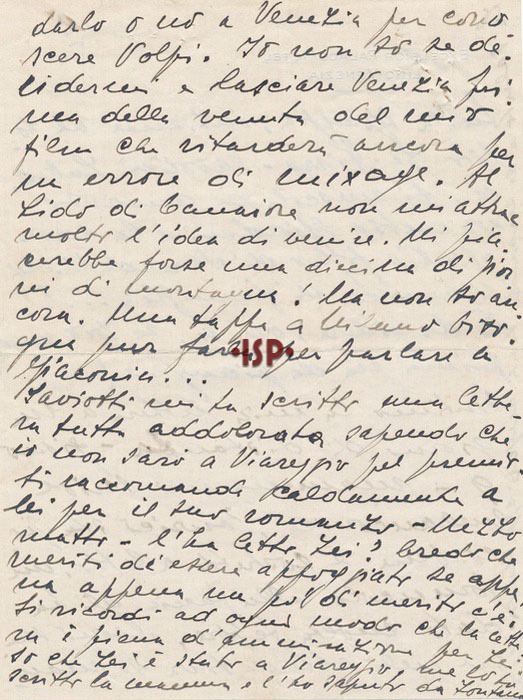 darlo o no a Venezia per cono
scere Volpi. Io non so se de
cidermi a lasciare Venezia pri
ma della venuta del mio
film che ritarderà ancora per
un errore di mixage. Al
Lido di Camaiore non mi attrae
molto l'idea di venire. Mi pia
cerebbe forse una diecina di gior
ni di montagna! Ma non so an
cora. Una tappa a Milano biso
gna pur farla per parlare a
•ISP•
Giaconia...
Saviotti mi ha scritto una lette
ra tutta addolorata sapendo che
io non sarò a Viareggio pel premio
si raccomanda caldamente a
lei per il suo romanzo - Mezzo
matto - l'ha letto Lei? Credo che
meriti di essere appoggiato se appe
na appena un po' di merito c'è.
Si ricordi ad ogni modo che la lette
ra è piena d'ammirazione per Lei.
so che Lei è stato a Viareggio, me lo ha
scritto la mamma l'ho saputo da